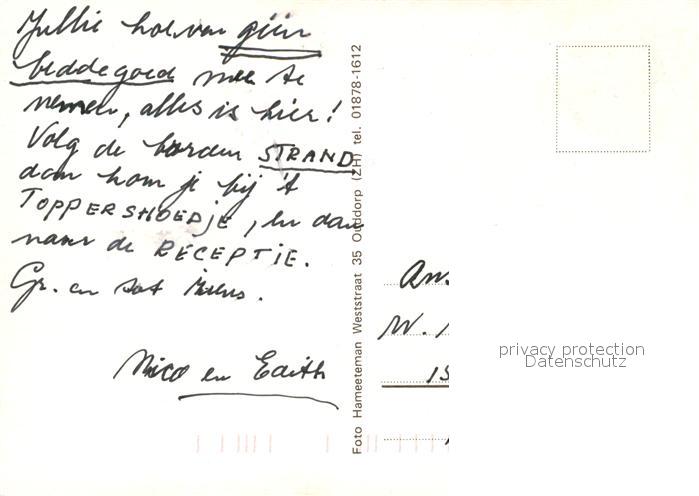 Jullie hoeven géén
beddegoed mee te
nemen, alles is hier!
Volg de borden STRAND
dan kom je bij 't
TOPPERSHOEDJE, en dan
naar de RECEPTIE.
Gr. en tot ziens.
Nico en Edith
Foto Hameeteman Weststraat 35 Ouddorp (ZH) tel. 01878-1612
An.
W.
15
privacy protection
Datenschutz